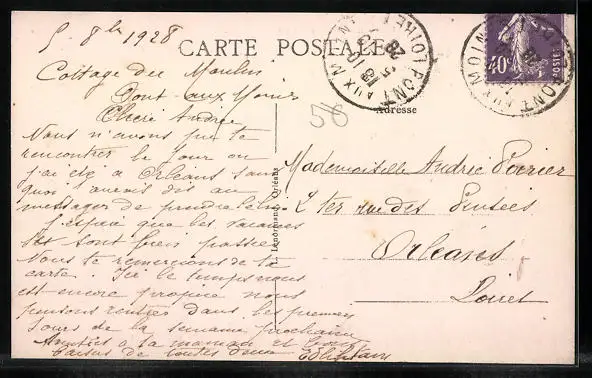 5 8bre 1928
CARTE POSTALE
Cottage du Moulin
Pont-aux-Moines
Chère Andrée
Nous n'avons pu te
rencontrer le jour ou
j'ai été a Orléans sans
quoi t'aurais dis au
messager de prendre
J'espère que les vacances
se sont bien passées
Nous te remercions de ta
carte. Ici le temps nous
est encore propice nous
pensons rentrer dans les premiers
jours de la semaine prochaine
Amitiés a ta maman et bons
baisers de toutes deux
58
Adresse
Mademoiselle Andrée Poirier
2 ter rue des Pensées
Orléans
Loiret
L. Lenormand, Orléans
PONT AUX MOINES
LOIRET
5 -10
28
40c
POSTES